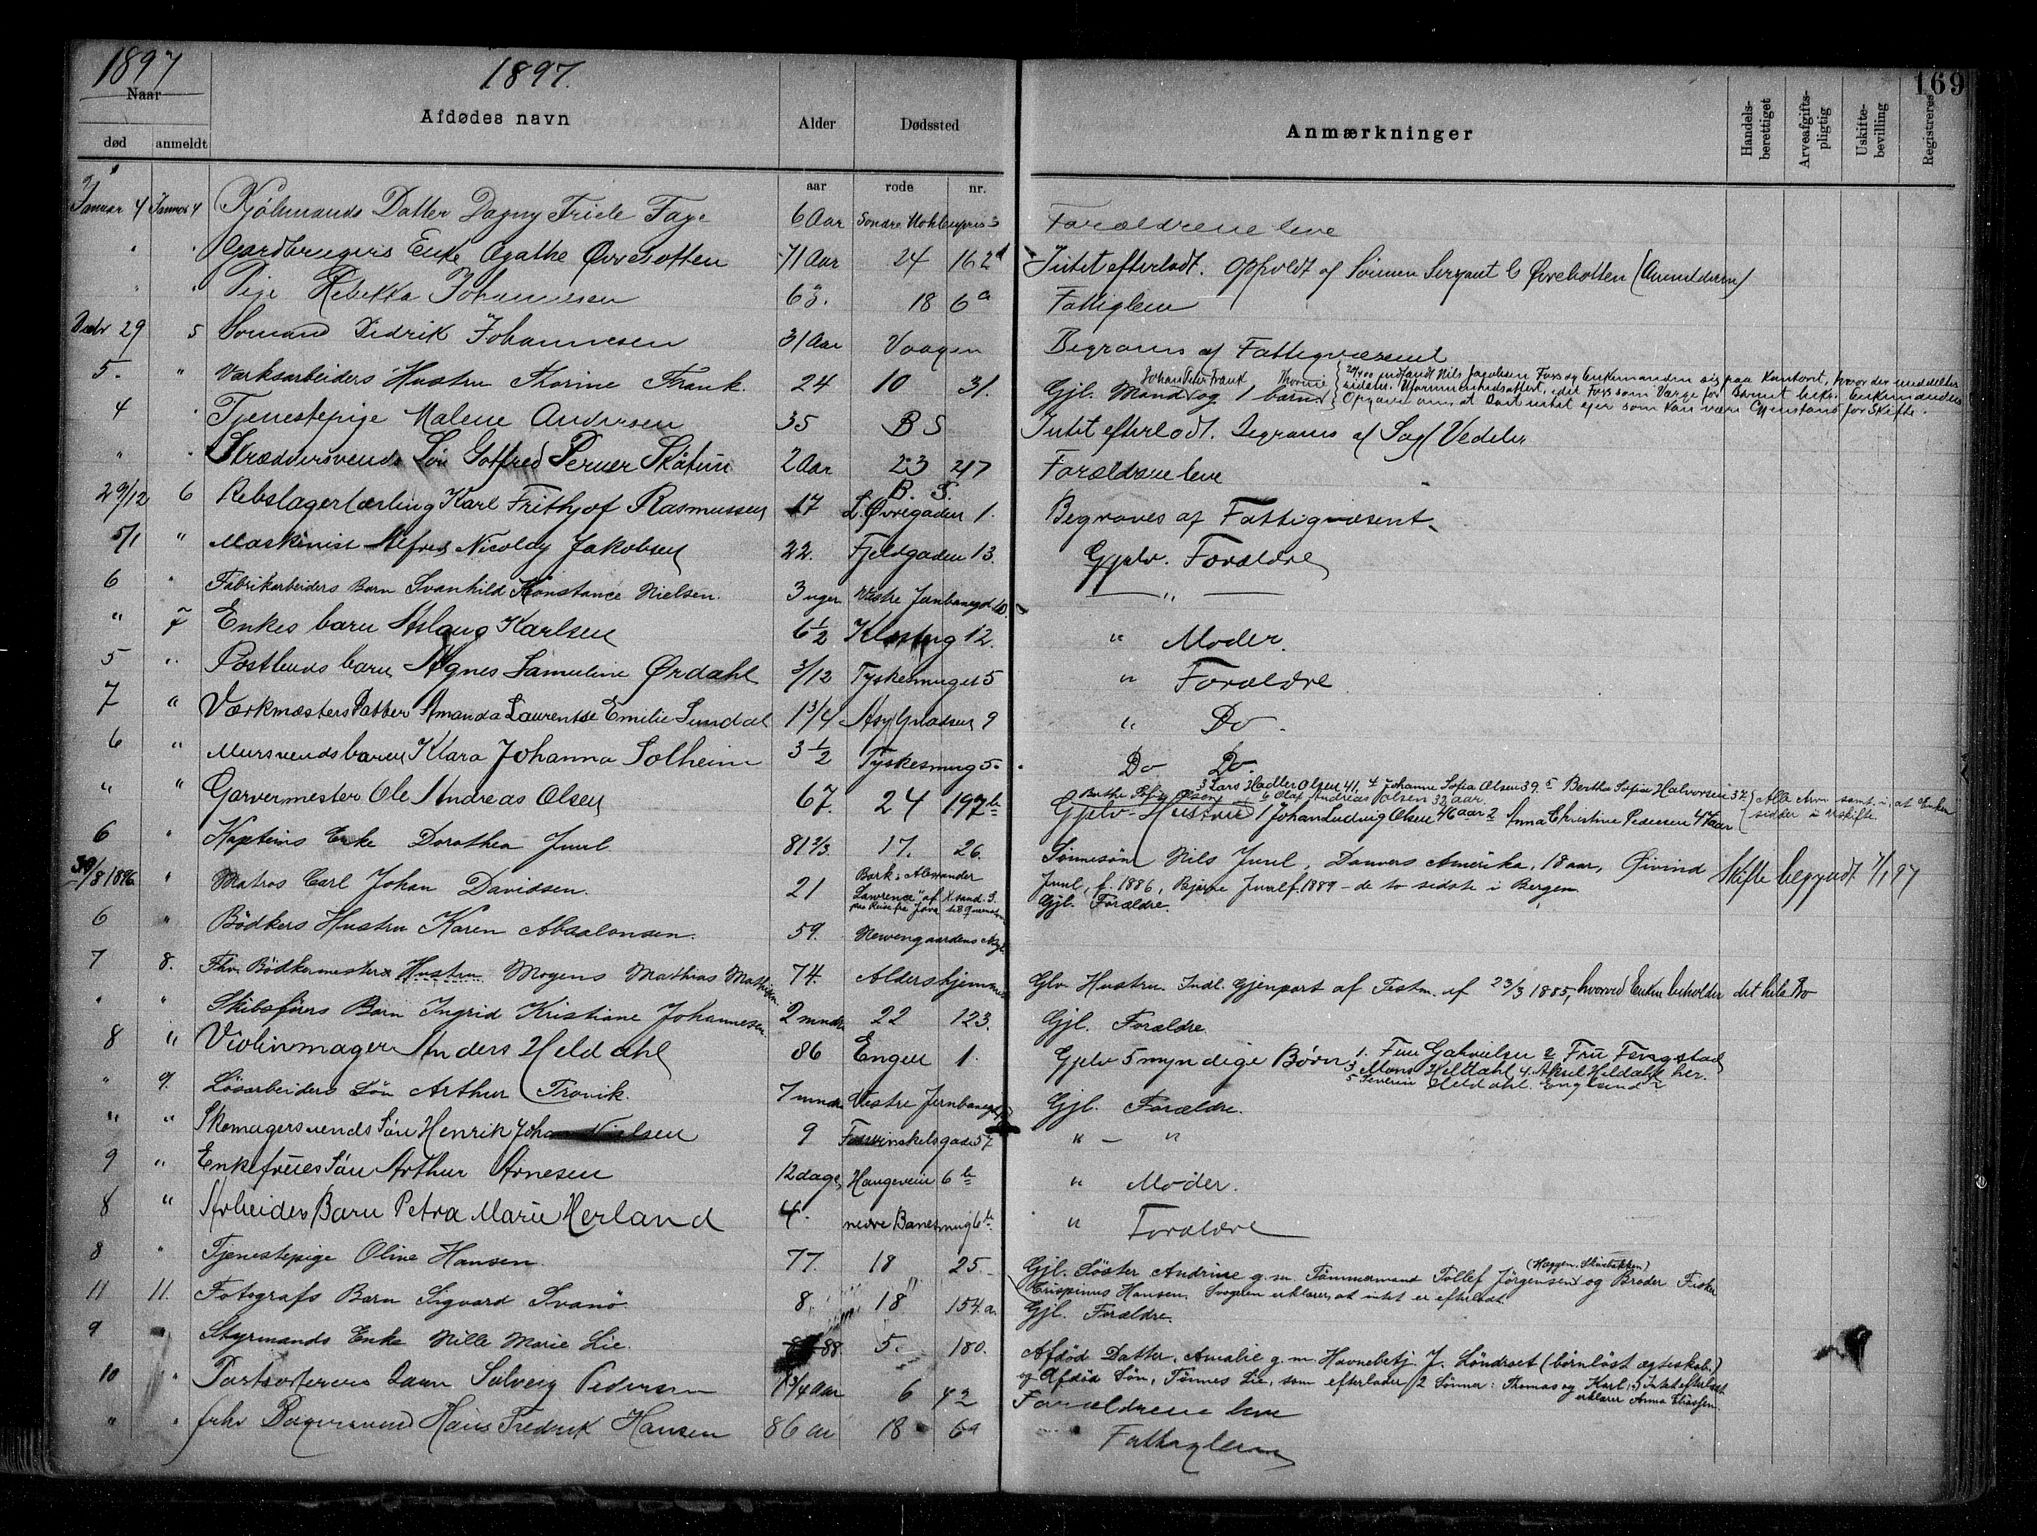 1897
1897.
169
Naar
Afdødes navn
Alder
Dødssted
Anmærkninger
Handels-berettiget
Arveafgifts-pligtig
Uskifte-bevilling
Registreres
død anmeldt
aar rode nr.
Januar 4 Januar 4 Kjølmands Datter Dagny Fride Faye 6 Aar Søndre Nohlenpris Forældrene leve
" " Gardbrugers Enke Agathe Øvrebotten 71 Aar 24 16 2 Intet efterladt. Opholdt af Sønnen Sergeant Øvrebotten (Anmelderen)
" " Pige Rebekka Johannesen 63. 18 6a Fattiglem
Decbr 29 5 Sømand Didrik Johannesen 31 Aar Vaagen Begraves af Fattigvæsenet
5. " Værksarbeiders Hustru Thorine Frank. 24 10 31. Gjl. Mand Johan Peter Frank og 1 barn Thorine
4 " Tjenestepige Malene Andersen 35 B S Intet efterladt. Begraves af Sagf Vedeler
" " Skræddersvends Søn Gotfred Perner Skåtun 2 Aar 23 217 Forældrene leve
29/12 6 Rebslagerlærling Karl Frithjof Rasmussen 17 B. S. L. Øvregaden 1. Begraves af Fattigvæsenet
5/1 " Maskinist Alfred Nicolay Jakobsen 22. Fjeldgaden 13. Gjplv. Forældre
6 " Fabrikarbeiders Barn Svanhild Konstance Nielsen. 3 uger Vestre Jernbanegd 10. "
" 7 Enkes barn Aslaug Karlsen 6 1/2 Klostrg 12. " Moder.
5 " Postbuds barn Agnes Samueline Ørdahl 3/12 Tyskesmuget 5 " Forældre
7 " Værkmesters Datter Amanda Laurentse Emilie Sundal 1 3/4 9 " Do.
6 " Mursvends barn Klara Johanna Solheim 3 1/2 Tyskesmug 5. Do Do.
" " Garvermester Ole Andreas Olsen 67. 24 197b Gjplv. Hustru Berthe Olsen 1 Johan Ludvig Olsen 46 aar 2 Anna Christine Pedersen 44 aar
3 Lars Hadler Olsen 41. 4 Johanne Sofia Olsen 39. 5 Bertha Sofia Halvorsen 37. 6 Olaf Andreas Olsen 32 aar Alle Arv samt. i, at Enken sidder i uskifte
6 " Kapteins Enke Dorothea Juul 81 2/3. 17. 26. Sønnesøn Nils Juul, Danvers Amerika, 18 aar, Øivind
Juul, f. 1886, Bjarne Juul f. 1889 – de to sidste i Bergen. Skifte begyndt 7/1 97
30/8 1896 " Matros Carl Johan Davidsen. 21 Bark: Alexander Lawrence" af X sand. S. paa Reise fra Java Gjl. Forældre.
6 " Bødkers Hustru Karen Absalonsen. 59. Newengaardens Asyl
7 8. Fhv. Bødkermester Hustru Mogens Mathias Mathisen 74. Aldershjemmet Glv Hustru. Indl. Gjenpart af Testm. af 23/3 1885, hvorved Enken beholder det hele Bo
" " Skibsførers Barn Ingrid Kristiane Johannesen 2 mndr 22 123. Gjl. Forældre.
8 " Violinmager Anders Heldahl 86 Engen 1. Gjplv 5 myndige Børn 1. Fru Gabrielsen 2 Fru Fengstad
3 Mons Heldahl 4. Aksel Heldahl her. 5 Severin Heldahl. England
" 9. Løsarbeiders Søn Arthur Trovik. 7 mndr Vestre Jernbanegd Gjl. Forældre.
" " Skomagersvends Søn Henrik Johan Nielsen 9 Forvinkelsgade 57 " – "
9 " Enkefrues Søn Arthur Arnesen 12 dage Haugeveien 6b " Moder.
8 " Arbeiders Barn Petra Marie Herland 4. nedre Banesmug 6b. " Forældre
8 " Tjenestepige Oline Hansen. 77. 18 25. Gjl. Søster Andrine g.m. Tømmermand Tollef Jørgensen (Haggen, Skivebakken) og Broder Fisker
Crispinus Hansen. Svogeren erklærer, at intet er efterladt.
11 11. Fotografs Barn Sigvard Svanø. 8. 18 154.a. Gjl. Forældre.
9 " Styrmands Enke Nille Marie Lie. 88. 5. 180. Afdød Datter, Amalie g.m. Havnebetj. J. Søndraet (børnløst ægteskab.)
og Afdød Søn, Tønnes Lie, som efterlader 2 Sønner: Thomas og Karl, Intet efterladt erklærer Anna Eliassen.
10 " Barn Solveig Pedersen 1 3/4 Aar 6 42 Forældrene leve
" " fhv Bagersvend Hans Fredrik Hansen 86 Aar 18 6a Fattiglem